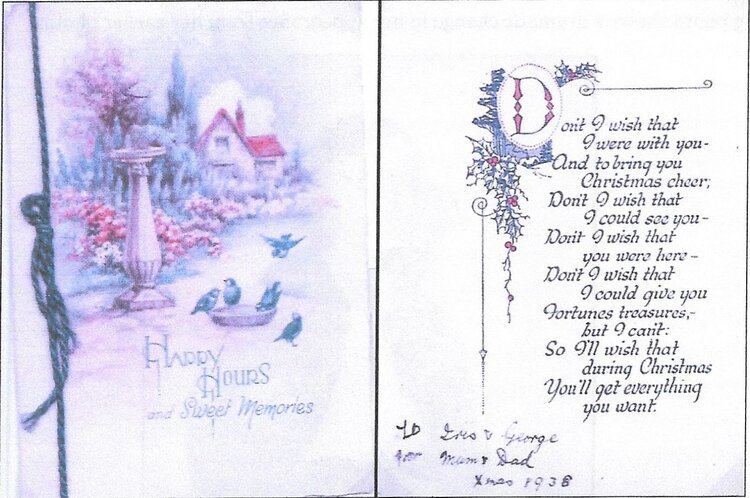 Happy
Hours
and Sweet Memories
Don't I wish that
I were with you-
And to bring you
Christmas cheer;
Don't I wish that
I could see you-
Don't I wish that
you were here-
Don't I wish that
I could give you
Fortunes treasures,-
but I can't:
So I'll wish that
during Christmas
You'll get everything
you want.
To Iris & George
from Mum & Dad
Xmas 1938